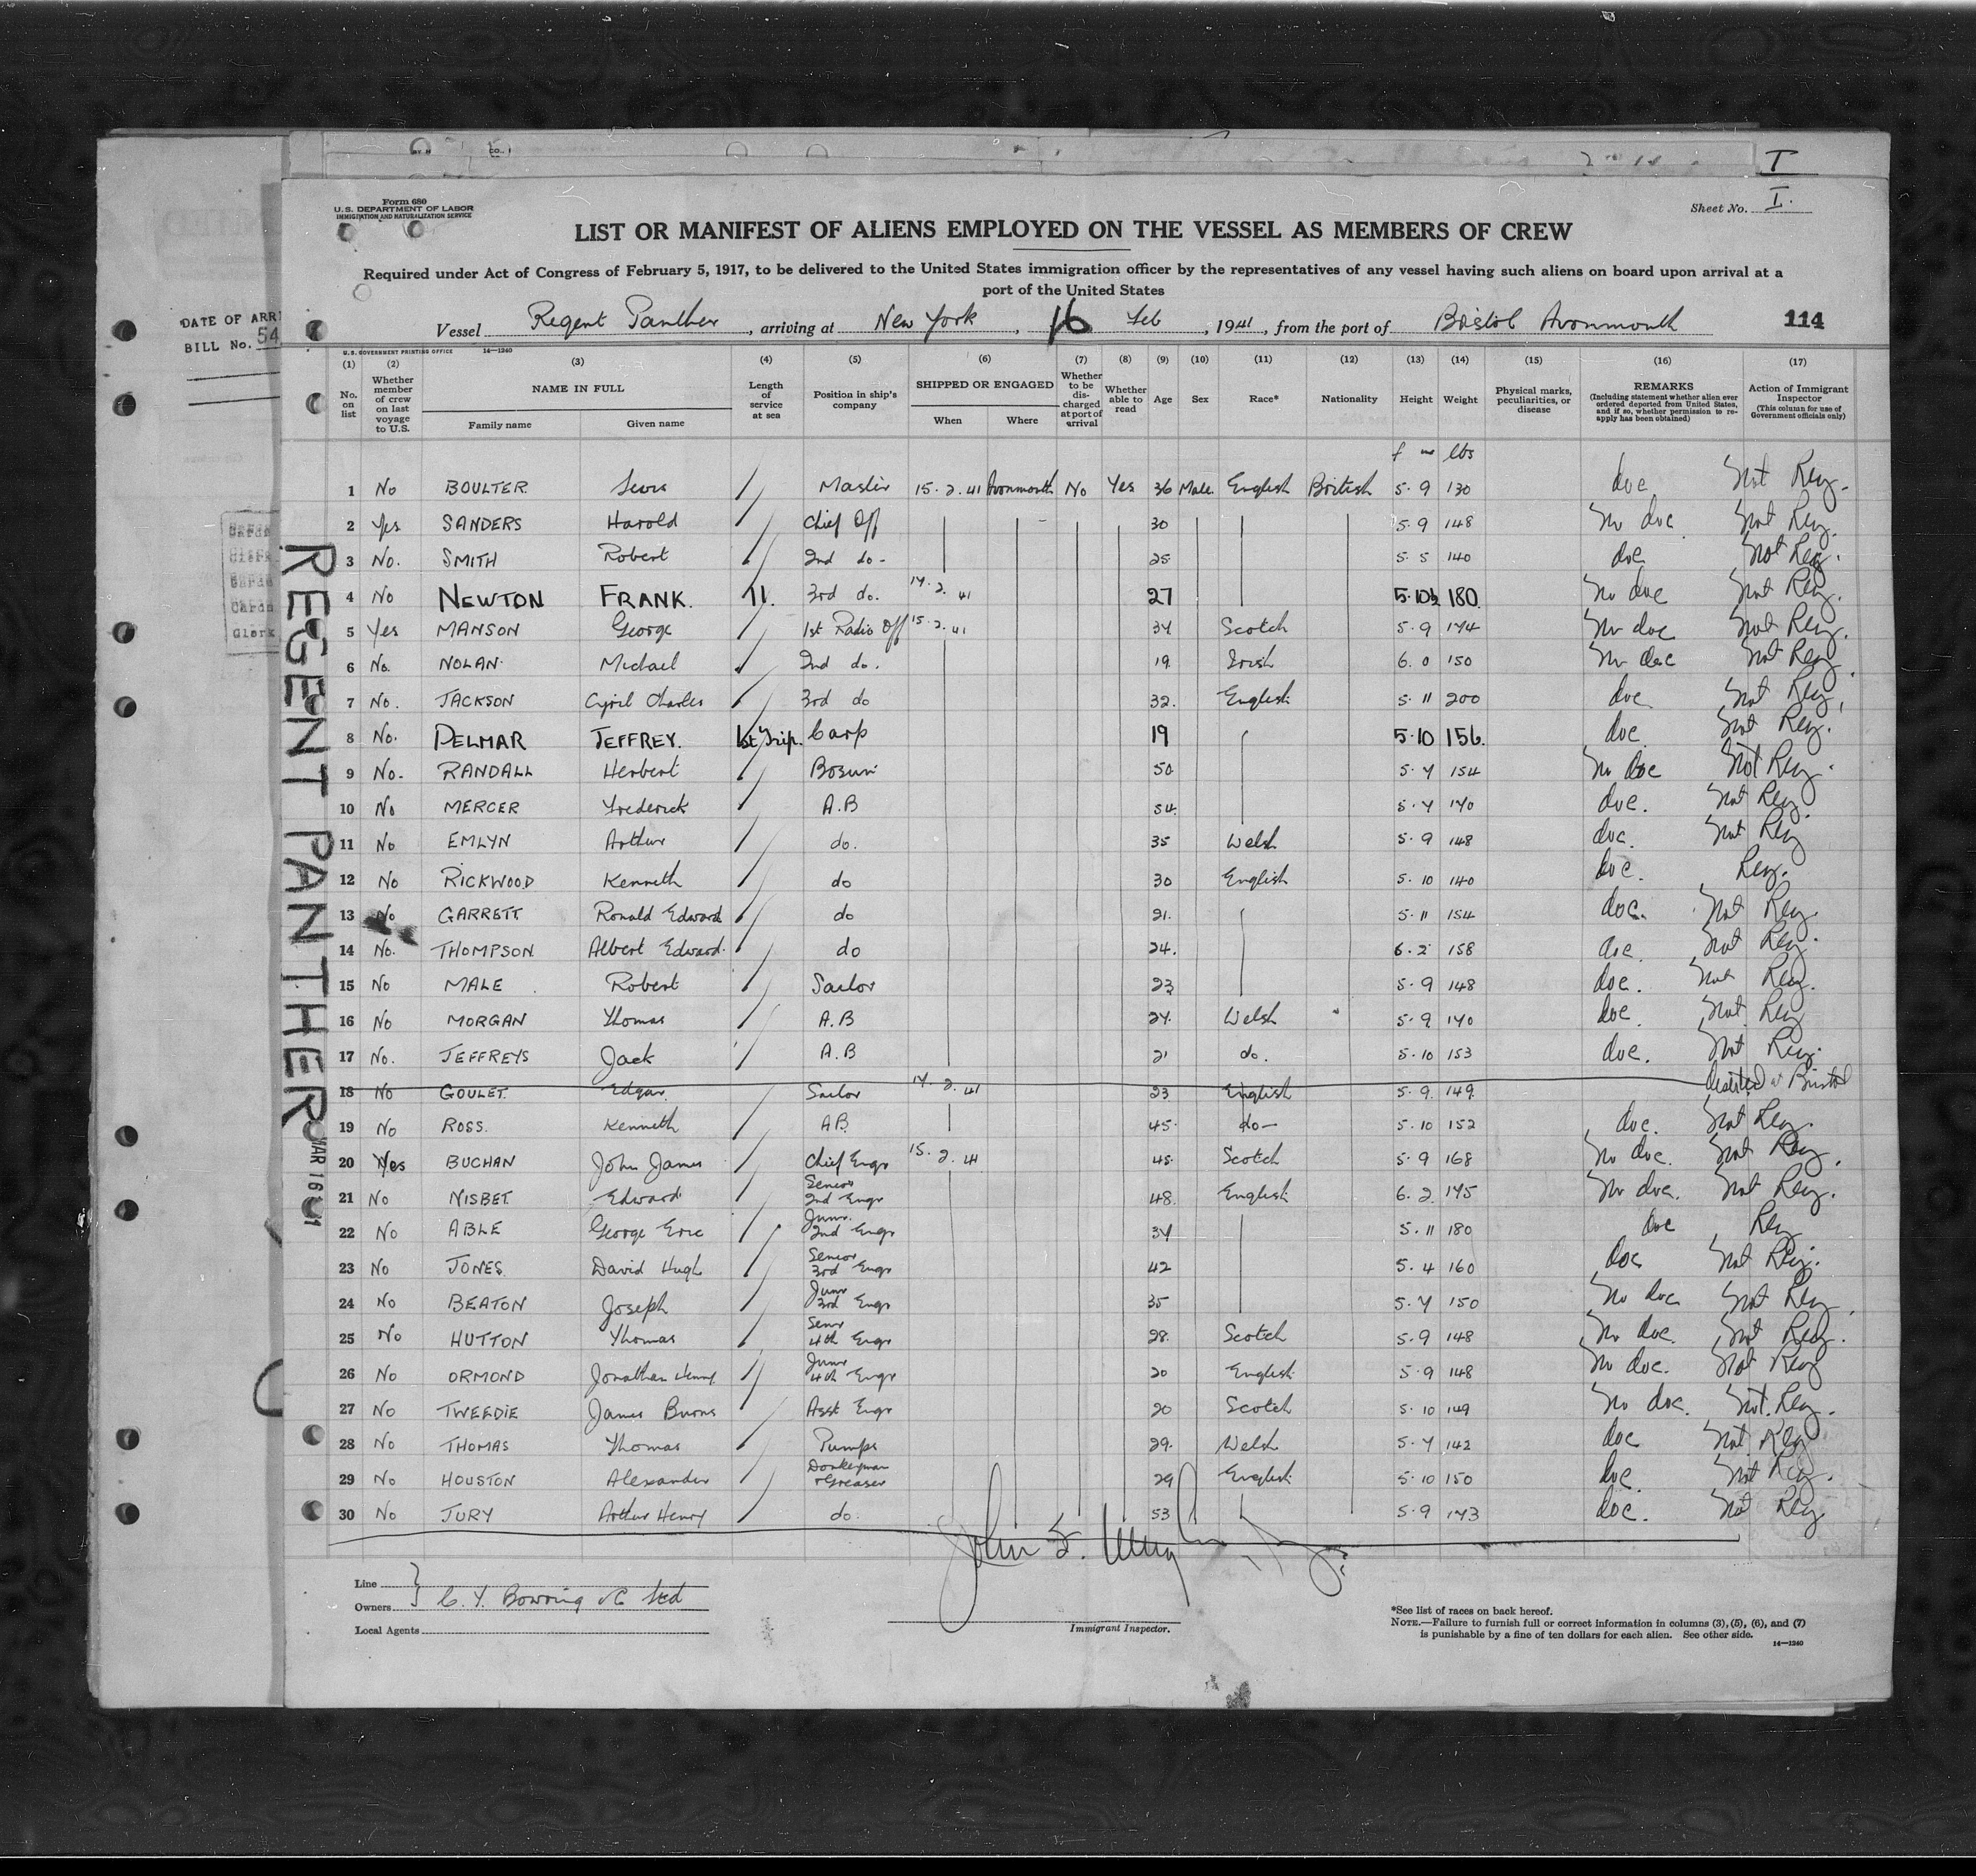 T
Form 680
U.S. DEPARTMENT OF LABOR
IMMIGRATION AND NATURALIZATION SERVICE
Sheet No. I.
LIST OR MANIFEST OF ALIENS EMPLOYED ON THE VESSEL AS MEMBERS OF CREW
Required under Act of Congress of February 5, 1917, to be delivered to the United States immigration officer by the representatives of any vessel having such aliens on board upon arrival at a
port of the United States
DATE OF ARRI
BILL No. 54
Vessel Regent Panther, arriving at New York, 16 Feb, 1941, from the port of Bristol Avonmouth 114
U.S. GOVERNMENT PRINTING OFFICE 14—1240
(1) (2) (3) (4) (5) (6) (7) (8) (9) (10) (11) (12) (13) (14) (15) (16) (17)
No. on list
Whether member of crew on last voyage to U.S.
NAME IN FULL
Family name Given name
Length of service at sea
Position in ship's company
SHIPPED OR ENGAGED
When Where
Whether to be discharged at port of arrival
Whether able to read
Age
Sex
Race*
Nationality
Height
Weight
Physical marks, peculiarities, or disease
REMARKS
(Including statement whether alien ever ordered deported from United States, and if so, whether permission to re-apply has been obtained)
Action of Immigrant Inspector
(This column for use of Government officials only)
lbs
1 No BOULTER Master 15.2.41 Avonmouth No Yes 36 Male English British 5.9 130 doc Not Reg.
2 Yes SANDERS Harold Chief Off 30 5.9 148 No doc Not Reg.
3 No. SMITH Robert 2nd do- 25 5 5 140 doc Not Reg.
4 No NEWTON FRANK. 11. 3rd do. 14.2.41 27 5.10½ 180 No doc Not Reg.
5 Yes MANSON George 1st Radio Off 15.2.41 34 Scotch 5.9 174 No doc Not Reg.
6 No. NOLAN Michael 2nd do. 19 Irish 6.0 150 No doc Not Reg
7 No. JACKSON Cyril Charles 3rd do 32. English 5.11 200 doc Not Reg.
8 No. DELMAR JEFFREY. 1st Trip. Carp 19 5.10 156. doc Not Reg.
9 No. RANDALL Herbert Bosun 50 5.7 154 No doc Not Reg.
10 No MERCER Frederick A.B 54 5.7 170 doc. Not Reg.
11 No EMLYN Arthur do. 35 Welsh 5.9 148 doc. Not Reg
12 No RICKWOOD Kenneth do 30 English 5.10 140 doc. Reg.
13 No GARRETT Ronald Edward do 21. 5.11 154 doc. Not Reg.
14 No. THOMPSON Albert Edward. do 24. 6.2 158 doc. Not Reg.
15 No MALE Robert Sailor 23 5.9 148 doc. Not Reg.
16 No MORGAN Thomas A.B 24. Welsh 5.9 170 doc. Not Reg
17 No. JEFFREYS Jack A.B 21 do. 5.10 153 doc. Not Reg.
18 No GOULET Edgar Sailor 14.2.41 23 English 5.9. 149 deserted at Bristol
19 No ROSS. Kenneth AB. 45 do- 5.10 152 doc. Not Reg.
20 Yes BUCHAN John James Chief Engr 15.2.41 45 Scotch 5.9 168 No doc. Not Reg.
21 No NISBET Edward Senior 2nd Engr 48. English 6.2 175 No doc. Not Reg.
22 No ABLE George Eric Junr. 2nd Engr 34 5.11 180 doc Reg
23 No JONES David Hugh Senior 3rd Engr 42 5.4 160 doc Not Reg.
24 No BEATON Joseph Junr 3rd Engr 35 5.7 150 No doc Not Reg.
25 No HUTTON Thomas Senr 4th Engr 28. Scotch 5.9 148 No doc. Not Reg.
26 No ORMOND Jonathan Henry Junr 4th Engr 20 English 5.9 148 No doc. Not Reg
27 No TWEEDIE James Burns Asst Engr 20 Scotch 5.10 149 No doc. Not. Reg.
28 No THOMAS Thomas Pumps 29. Welsh 5.7 142 doc Not Reg
29 No HOUSTON Alexander Donkeyman & Greaser 29 English 5.10 150 doc. Not Reg.
30 No JURY Arthur Henry do. 53 5.9 173 doc. Not Reg
REGENT PANTHER
MAR 16
Clerk
Line
Owners C. T. Bowring & C Ltd
Local Agents
Immigrant Inspector.
*See list of races on back hereof.
NOTE.—Failure to furnish full or correct information in columns (3), (5), (6), and (7)
is punishable by a fine of ten dollars for each alien. See other side. 14—1240